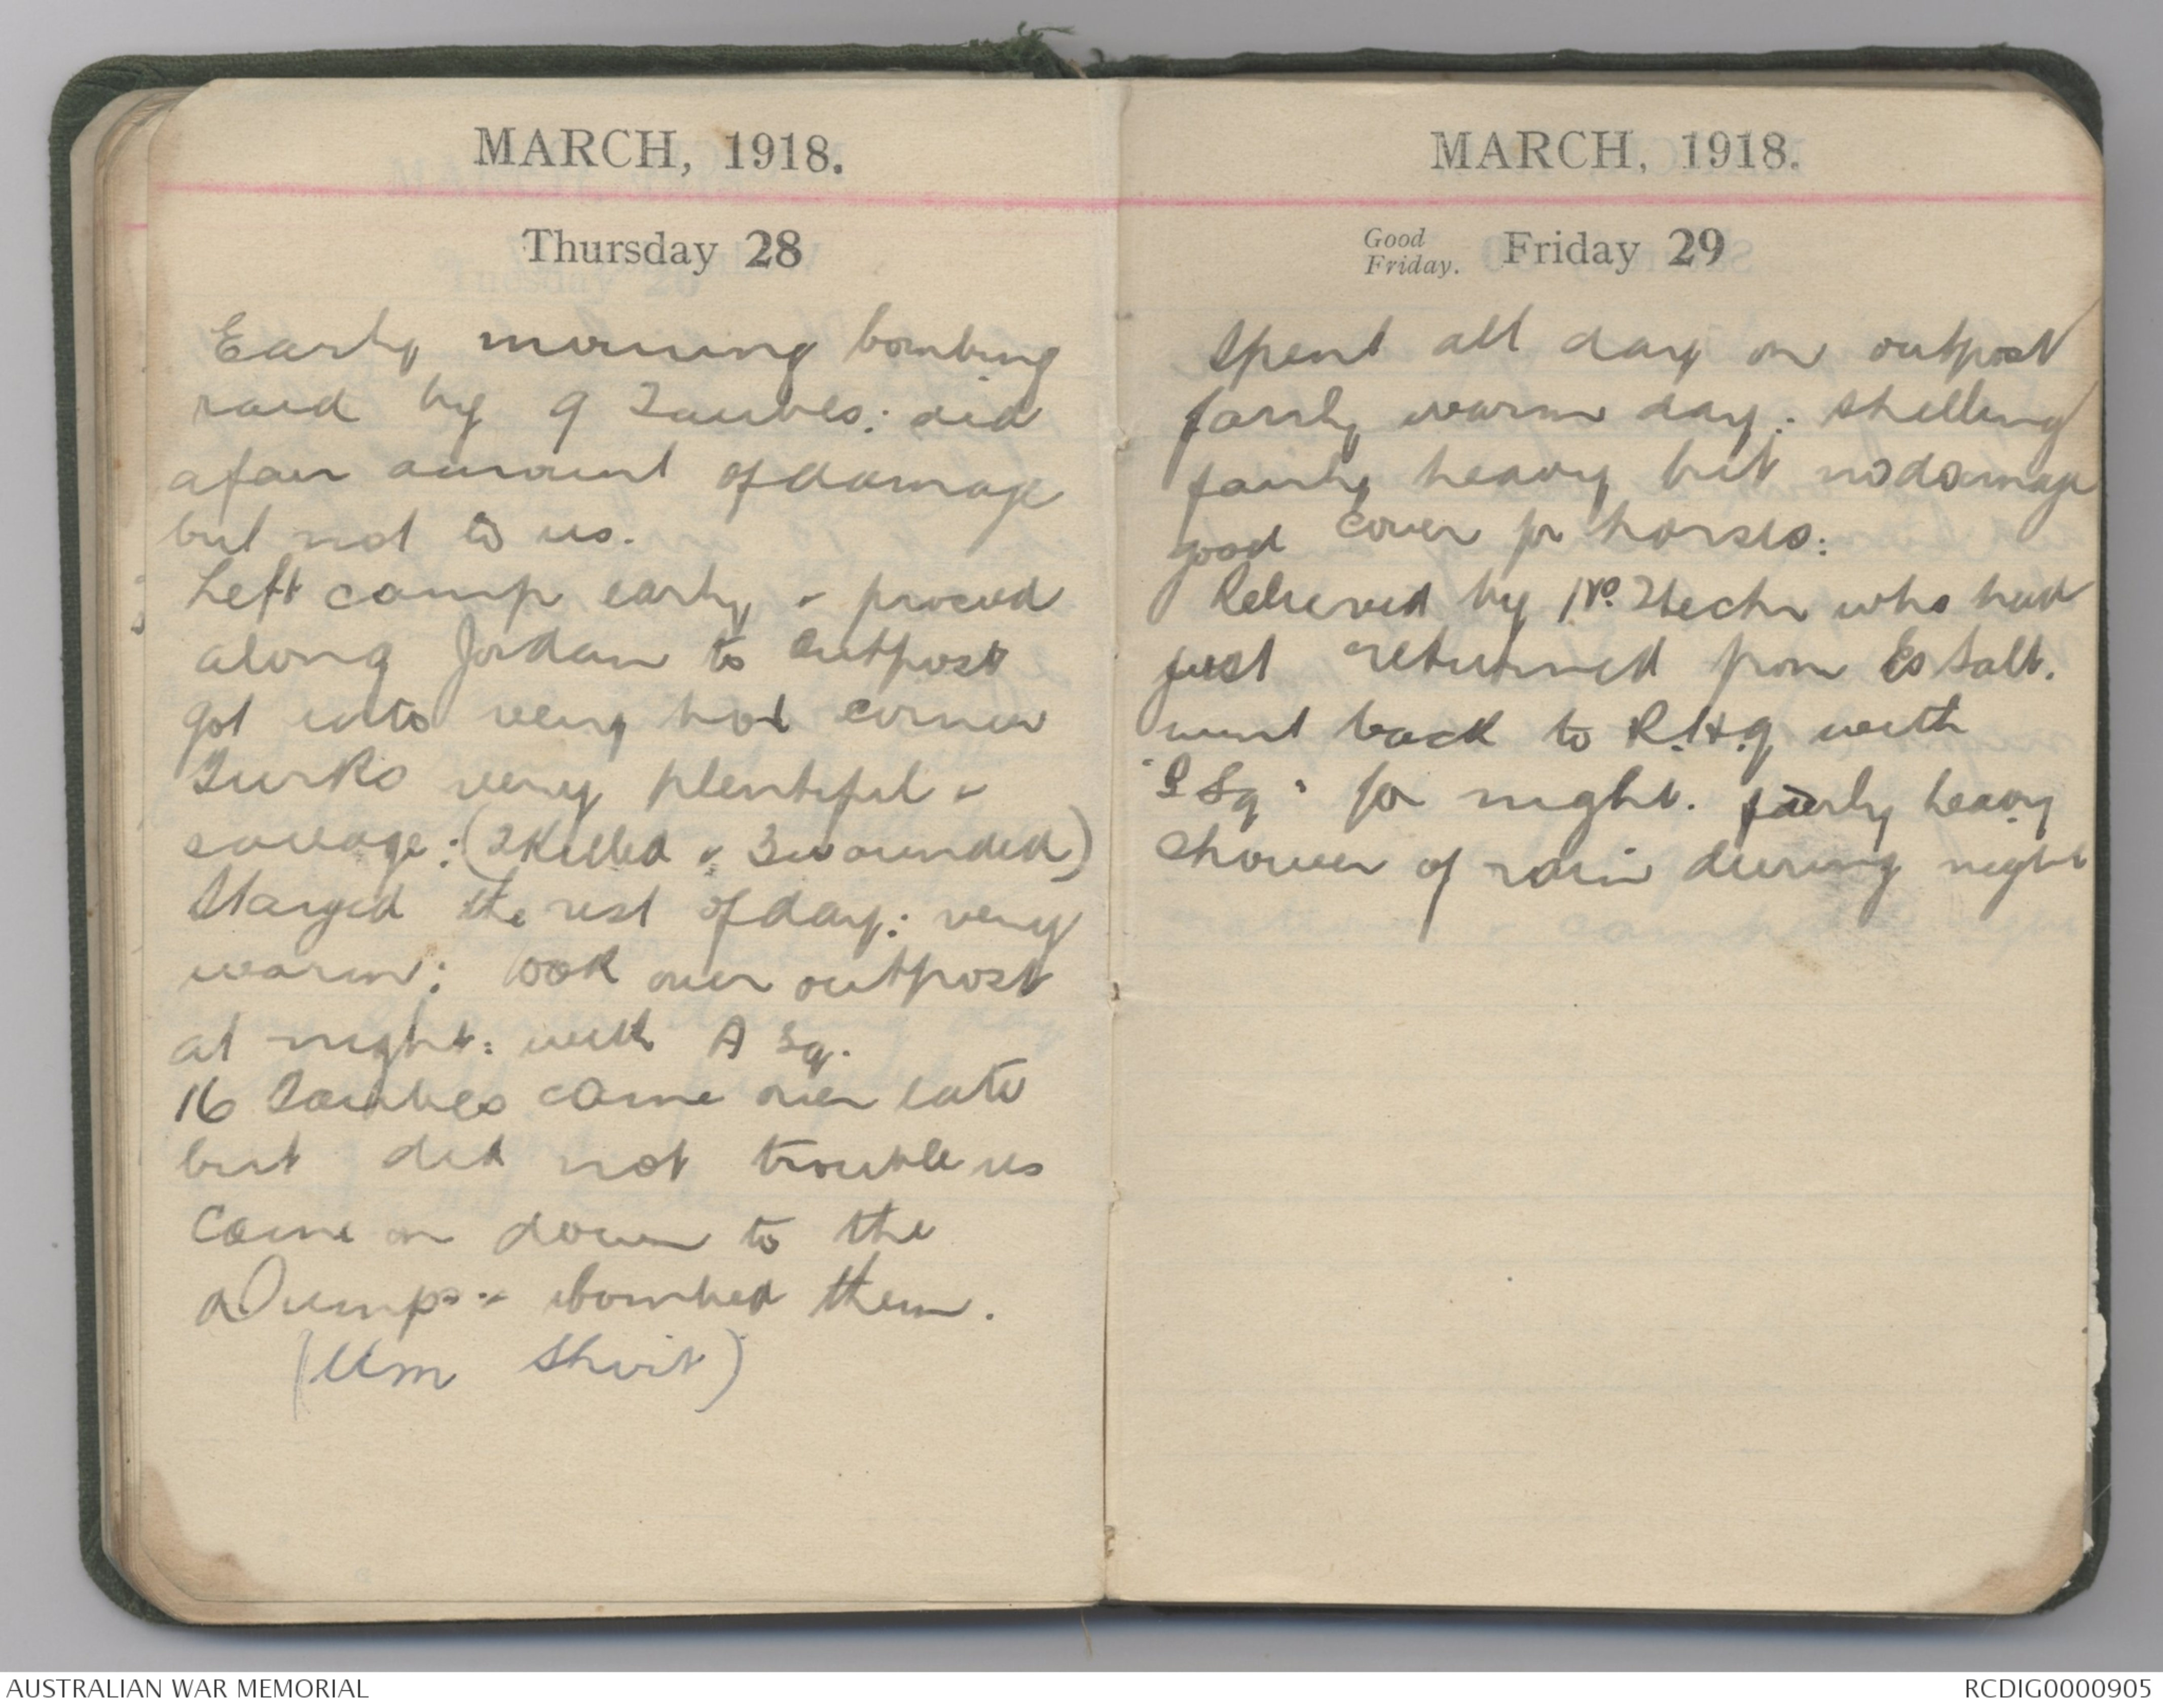 MARCH, 1918.
Thursday 28
Early morning bombing
raid by 9 Taubes: did
a fair amount of damage
but not to us.
Left camp early & proceed
along Jordan to outpost
got into very hot corner
Turks very plentiful &
savage: (2 Killed & 3 wounded)
Stayed the rest of day: very
warm: took over outpost
at night: with A Sq.
16 Taubes came over late
but did not trouble us
Came on down to the
Dumps & bombed them.
(Um Shirt)
MARCH, 1918.
Good Friday. Friday 29
Spent all day on outpost
fairly warm day: shelling
fairly heavy but no damage
good cover for horses:
Relieved by No. 2 Sectn who had
just returned from Es Salt.
went back to R.H.Q with
Sq" for night. fairly heavy
shower of rain during night
AUSTRALIAN WAR MEMORIAL
RCDIG0000905